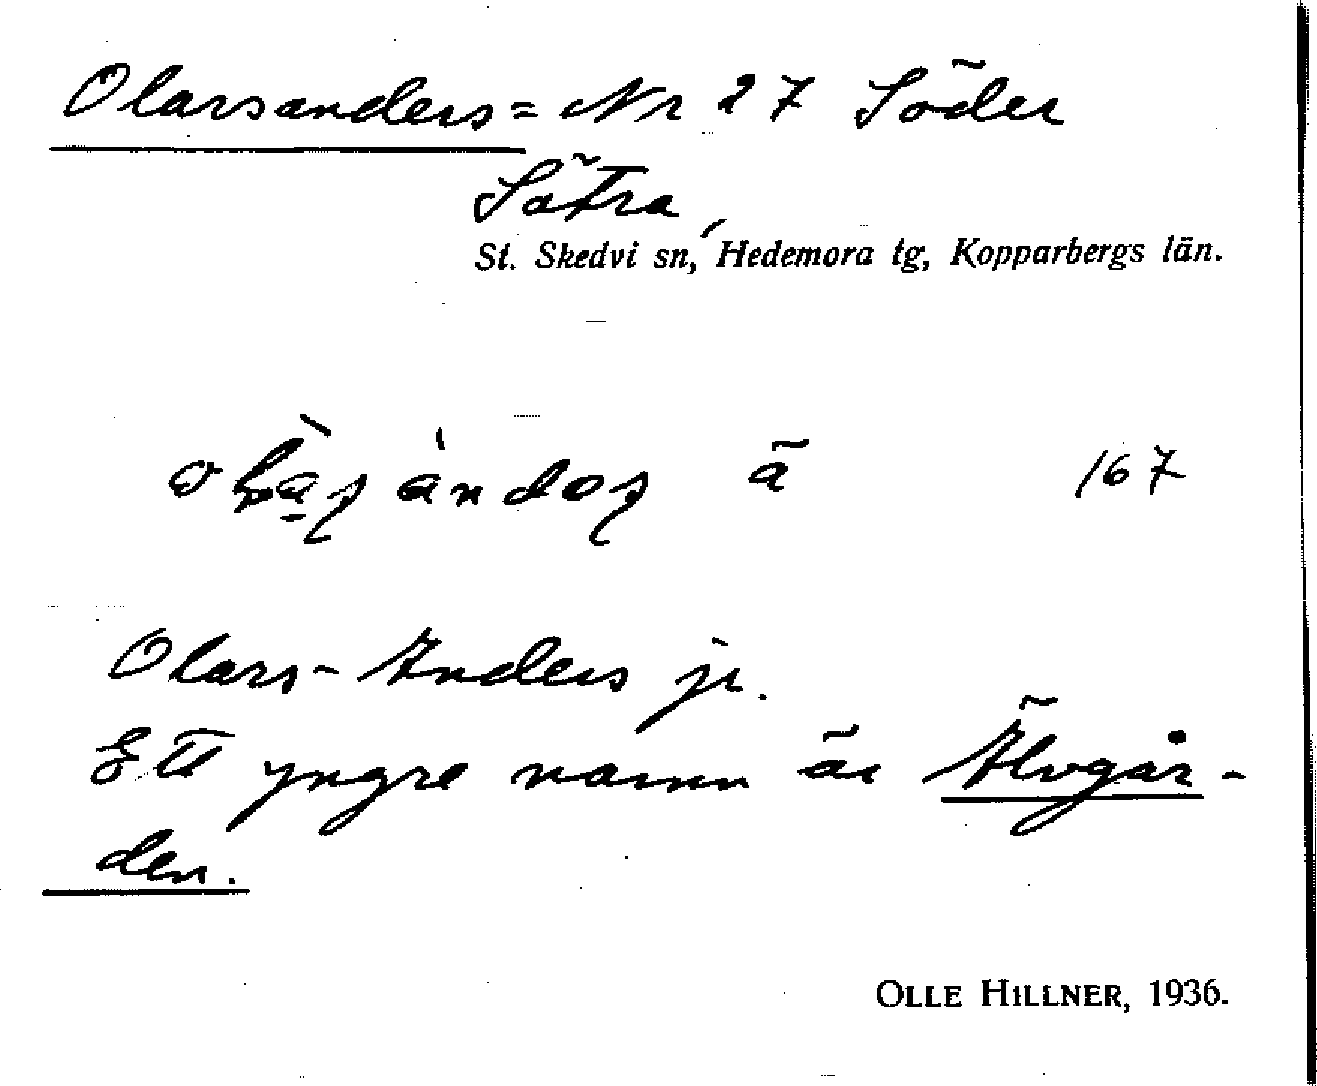 Olarsanders = Nr 27 Söder
Sätra,
St. Skedvi sn, Hedemora tg, Kopparbergs län.
ä 167
Olars-Anders jr.
Ett yngre namn är Älvgår-
den.
OLLE HILLNER, 1936.